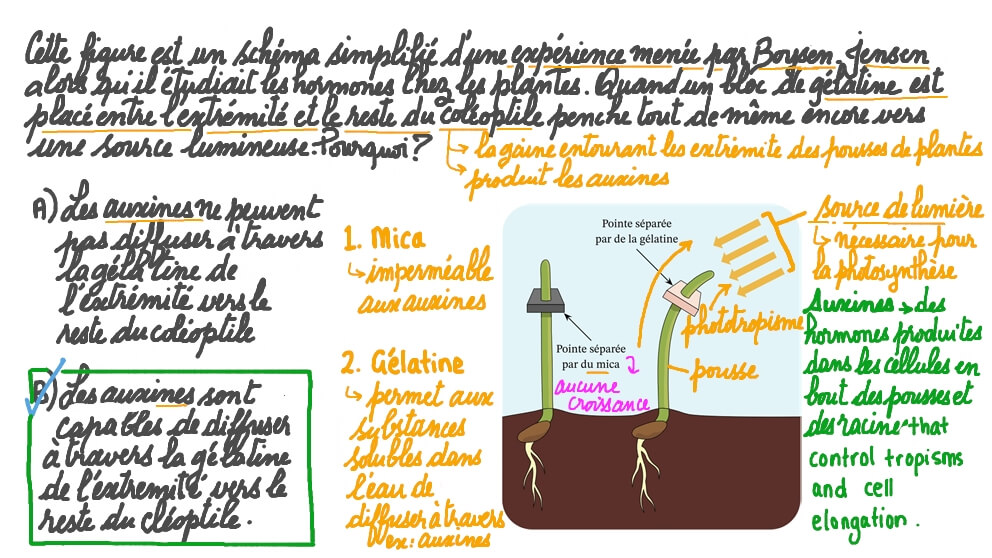 Cette figure est un schéma simplifié d'une expérience menée par Boysen Jensen
alors qu'il étudiait les hormones chez les plantes. Quand un bloc de gélatine est
placé entre l'extrémité et le reste du coléoptile penche tout de même encore vers
une source lumineuse. Pourquoi?
↳ la gaine entourant les extrémité des pousses de plantes
↳ produit les auxines
A) Les auxines ne peuvent
pas diffuser à travers
la gélatine de
l'extrémité vers le
reste du coléoptile
B) Les auxines sont
capables de diffuser
à travers la gélatine
de l'extrémité vers le
reste du cléoptile.
1. Mica
↳ imperméable
aux auxines
2. Gélatine
↳ permet aux
substances
solubles dans
l'eau de
diffuser à travers
ex: auxines
Pointe séparée
par de la gélatine
Pointe séparée
par du mica
aucune
croissance
phototropisme
pousse
source de lumière
↳ nécessaire pour
la photosynthèse
Auxines → des
hormones produites
dans les cellules en
bout des pousses et
des racine that
control tropisms
and cell
elongation.